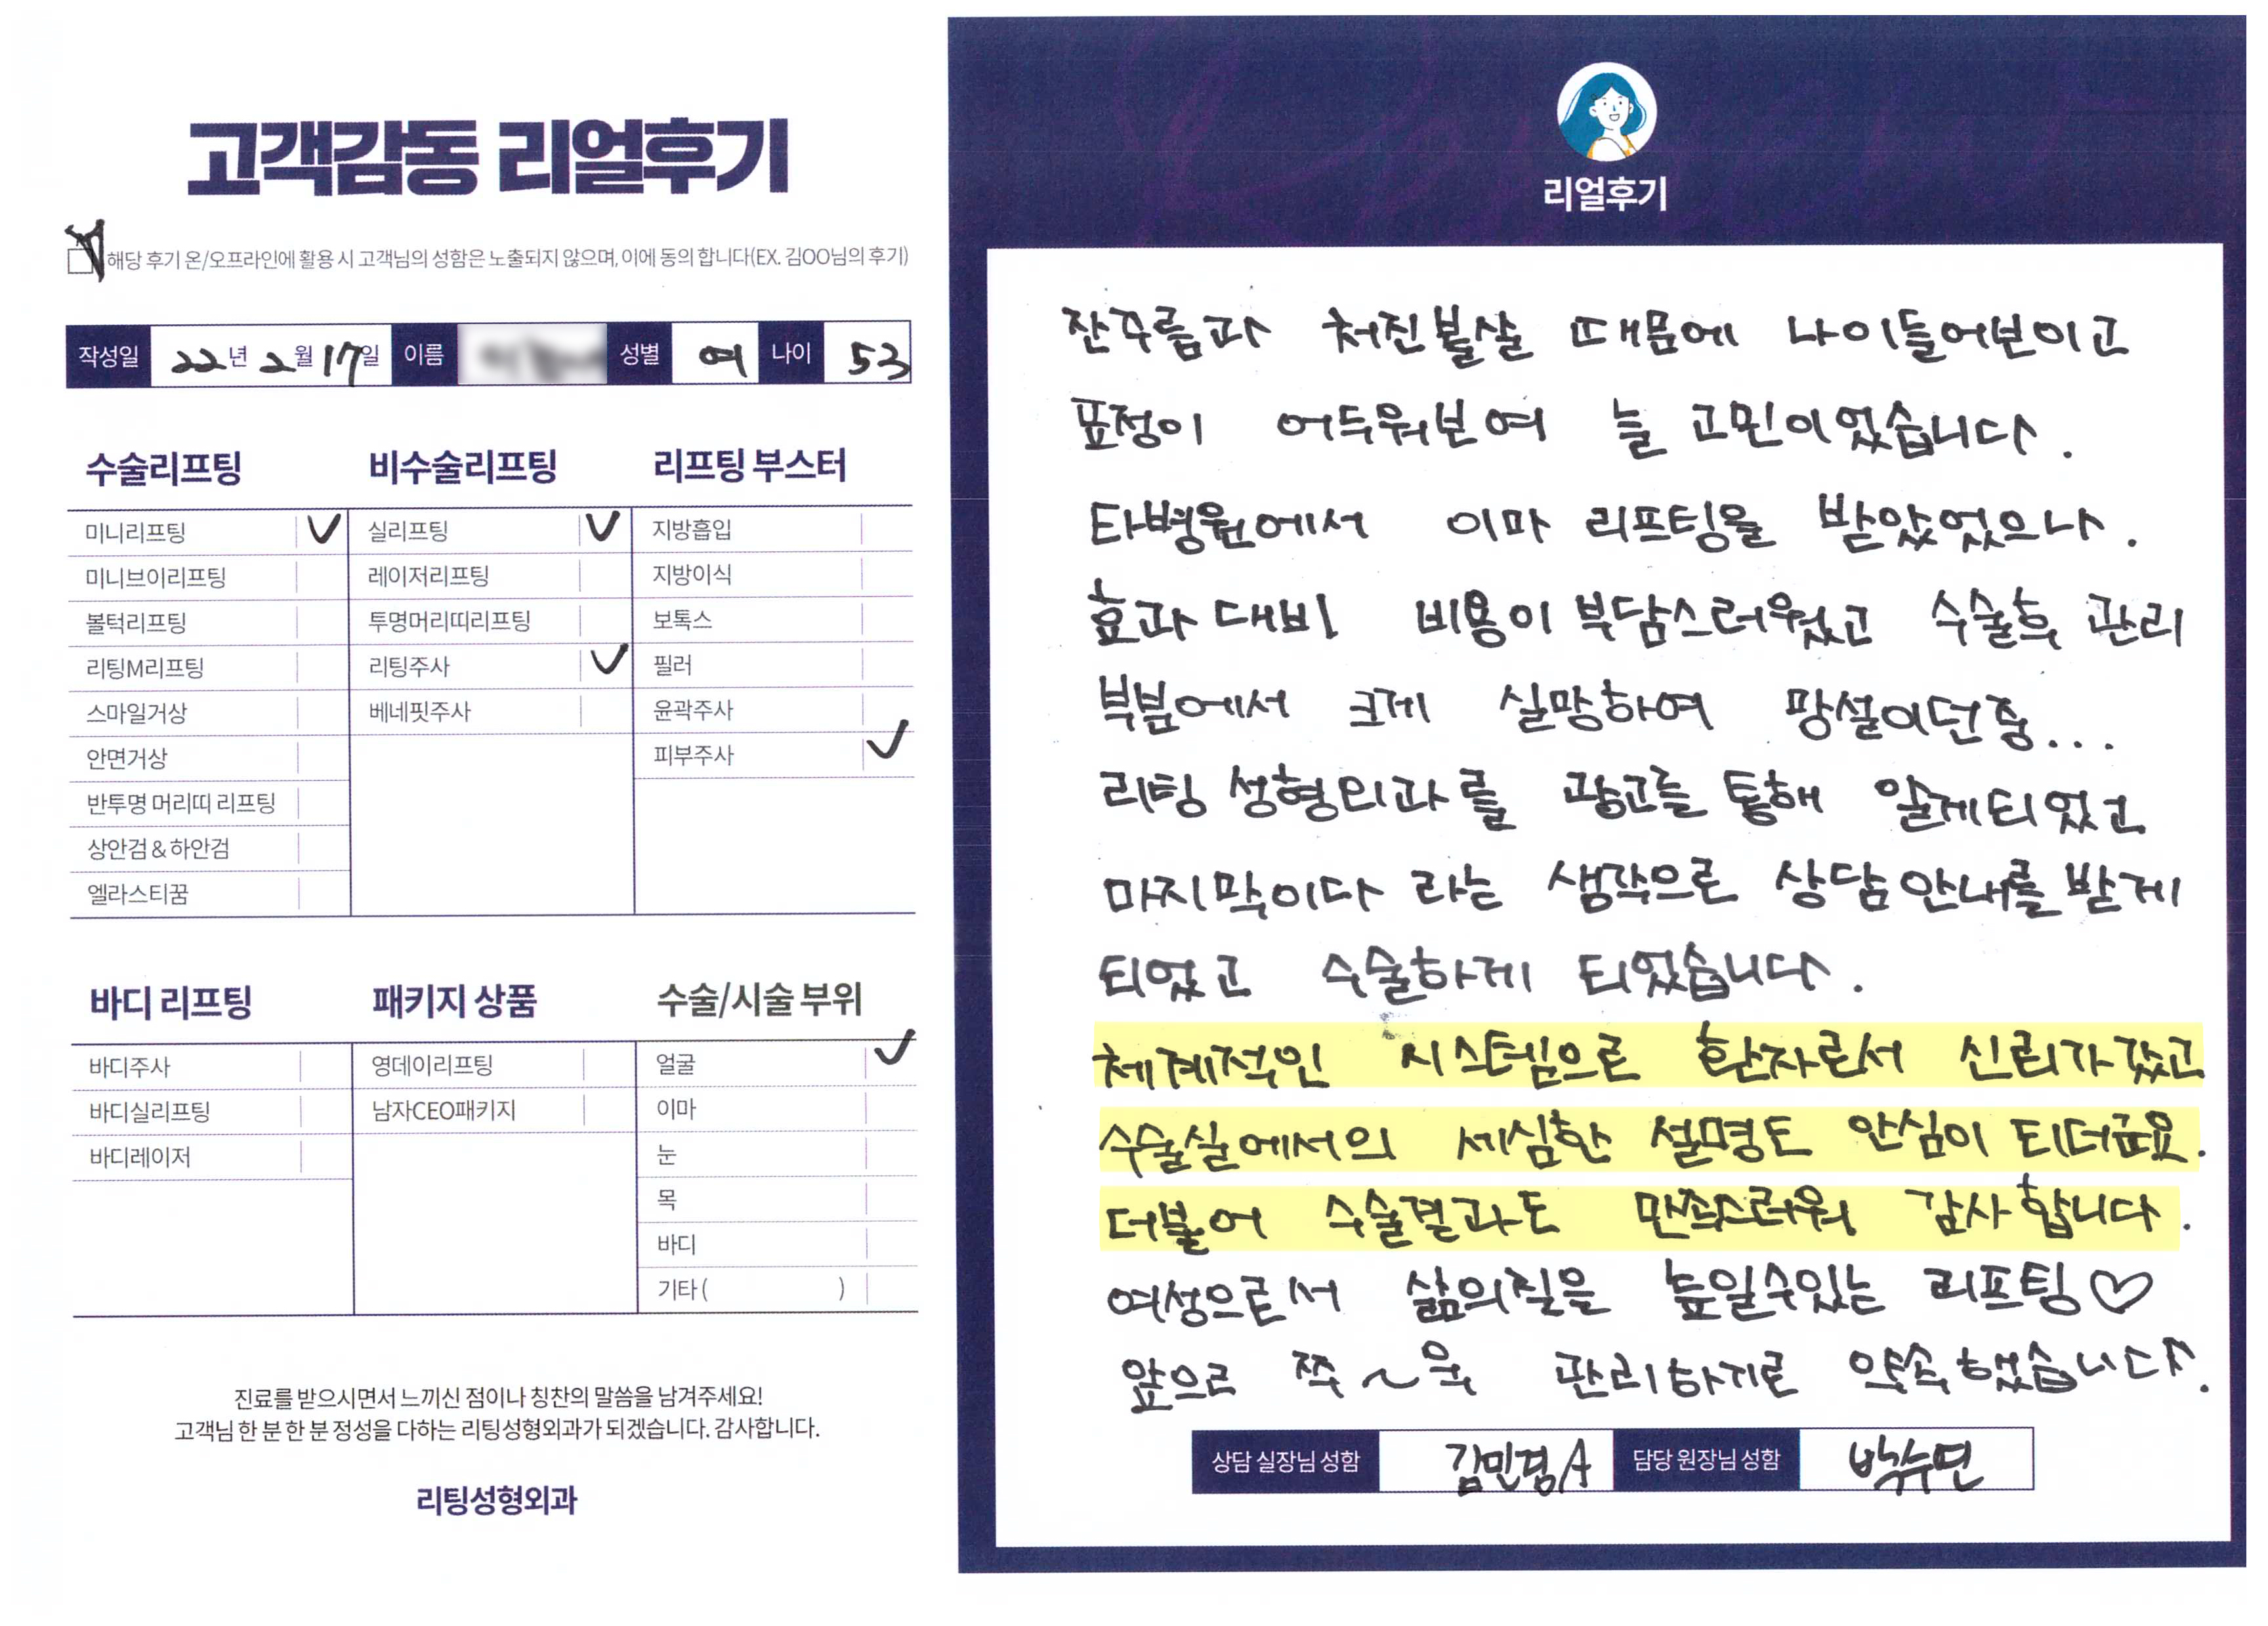 고객감동 리얼후기
해당 후기 온/오프라인에 활용 시 고객님의 성함은 노출되지 않으며, 이에 동의 합니다(EX. 김OO님의 후기)
작성일 22년 2월 17일 이름 성별 여 나이 53
수술리프팅
미니리프팅
미니브이리프팅
볼턱리프팅
리팅M리프팅
스마일거상
안면거상
반투명 머리띠 리프팅
상안검 & 하안검
엘라스티꿈
비수술리프팅
실리프팅
레이저리프팅
투명머리띠리프팅
리팅주사
베네핏주사
리프팅 부스터
지방흡입
지방이식
보톡스
필러
윤곽주사
피부주사
바디 리프팅
바디주사
바디실리프팅
바디레이저
패키지 상품
영데이리프팅
남자CEO패키지
수술/시술 부위
얼굴
이마
눈
목
바디
기타 ( )
진료를 받으시면서 느끼신 점이나 칭찬의 말씀을 남겨주세요!
고객님 한 분 한 분 정성을 다하는 리팅성형외과가 되겠습니다. 감사합니다.
리팅성형외과
리얼후기
잔주름과 처진볼살 때문에 나이들어보이고
표정이 어두워보여 늘 고민이었습니다.
타병원에서 이마 리프팅을 받았었으나.
효과 대비 비용이 부담스러웠고 수술후 관리
부분에서 크게 실망하여 망설이던중...
리팅 성형외과를 광고를 통해 알게티었고
마지막이다 라는 생각으로 상담안내를 받게
티었고 수술하게 티었습니다.
체계적인 시스템으로 환자로서 신뢰가갔고
수술실에서의 세심한 설명도 안심이 티더군요.
더불어 수술결과도 만족스러워 감사합니다.
여성으로서 삶의질을 높일수있는 리프팅♡
앞으로 쭈~욱 관리하기로 약속했습니다.
상담 실장님 성함 김민경A 담당 원장님 성함